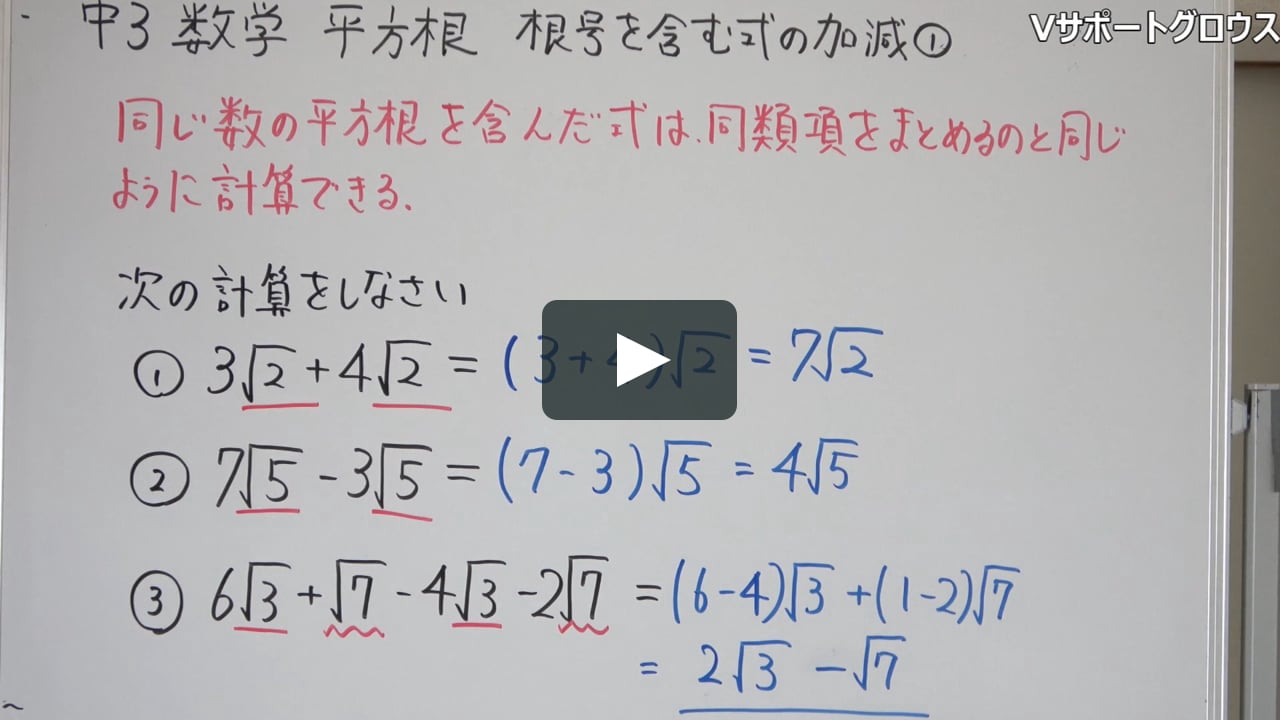 中3 数学 平方根 根号を含む式の加減①
Vサポートグロウス
同じ数の平方根を含んだ式は、同類項をまとめるのと同じ
ように計算できる.
次の計算をしなさい
① 3√2 + 4√2 = (3+4)√2 = 7√2
② 7√5 - 3√5 = (7-3)√5 = 4√5
③ 6√3 + √7 - 4√3 - 2√7 = (6-4)√3 + (1-2)√7
= 2√3 - √7